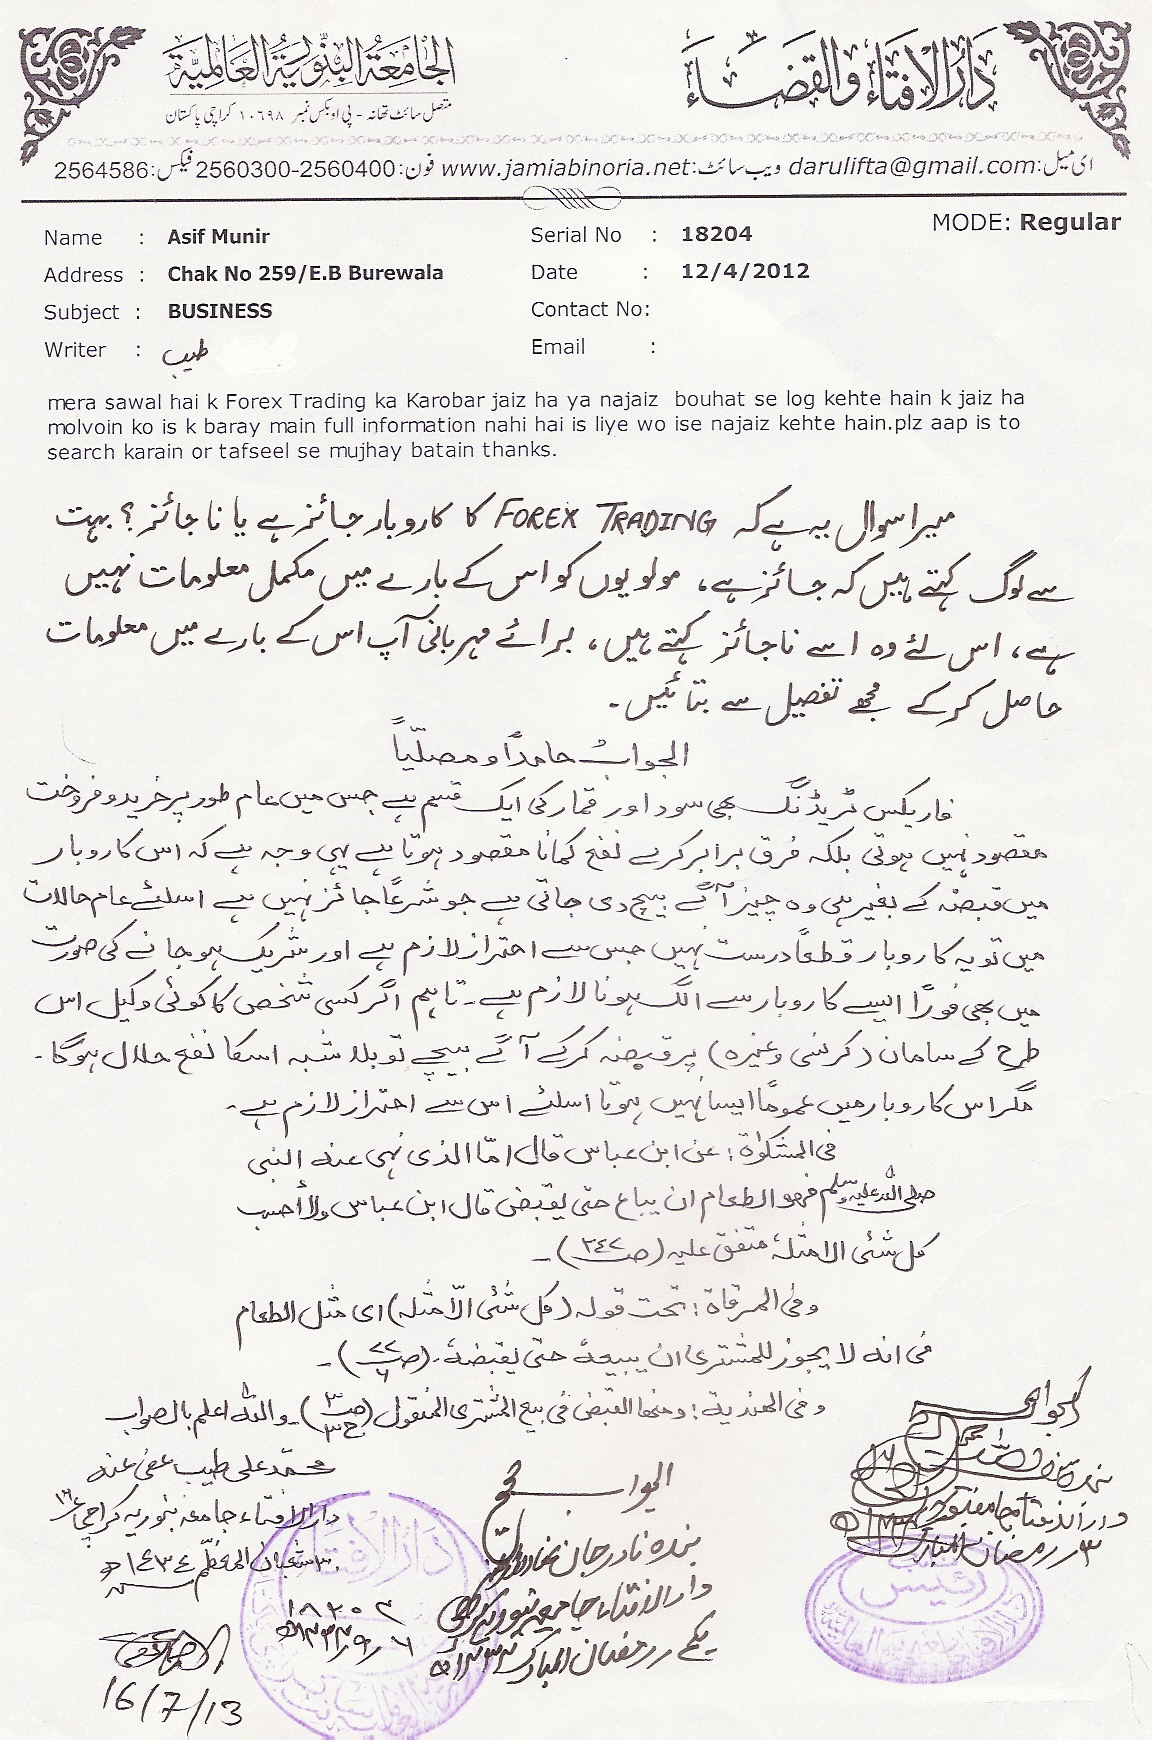 دار الافتاء والقضاء
الجامعة البنورية العالمية
متصل سائٹ تھانہ - پی او بکس نمبر ۱۰۶۹۸ کراچی پاکستان
ای میل:darulifta@gmail.com ویب سائٹ:www.jamiabinoria.net فون:2560300-2560400 فیکس:2564586
MODE: Regular
Name : Asif Munir
Serial No : 18204
Address : Chak No 259/E.B Burewala
Date : 12/4/2012
Subject : BUSINESS
Contact No:
Writer : طیب
Email :
mera sawal hai k Forex Trading ka Karobar jaiz ha ya najaiz bouhat se log kehte hain k jaiz ha
molvoin ko is k baray main full information nahi hai is liye wo ise najaiz kehte hain.plz aap is to
search karain or tafseel se mujhay batain thanks.
میرا سوال یہ ہے کہ FOREX TRADING کا کاروبار جائز ہے یا ناجائز؟ بہت
سے لوگ کہتے ہیں کہ جائز ہے، مولویوں کو اس کے بارے میں مکمل معلومات نہیں
ہے، اس لئے وہ اسے ناجائز کہتے ہیں، برائے مہربانی آپ اس کے بارے میں معلومات
حاصل کر کے مجھے تفصیل سے بتائیں۔
الجوابُ حامدًا ومصلّیاً
فاریکس ٹریڈنگ بھی سود اور قمار کی ایک قسم ہے جس میں عام طور پر خرید و فروخت
مقصود نہیں ہوتی بلکہ فرق برابر کر کے نفع کمانا مقصود ہوتا ہے یہی وجہ ہے کہ اس کاروبار
میں قبضہ کے بغیر ہی وہ چیز آگے بیچ دی جاتی ہے جو شرعًا جائز نہیں ہے اسلئے عام حالات
میں تو یہ کاروبار قطعاً درست نہیں جس سے احتراز لازم ہے اور شریک ہو جانے کی صورت
میں بھی فورًا ایسے کاروبار سے الگ ہونا لازم ہے۔ تاہم اگر کسی شخص کا کوئی وکیل اس
طرح کے سامان (کرنسی وغیرہ) پر قبضہ کر کے آگے بیچے تو بلا شبہ اسکا نفع حلال ہوگا۔
مگر اس کاروبار میں عمومًا ایسا نہیں ہوتا اسلئے اس سے احتراز لازم ہے۔
فی المشکوٰة: عن ابن عباس قال امّا الذی نھی عنه النبی
صلی اللہ علیہ وسلم فھو الطعام ان یباع حتی یقبض قال ابن عباس ولا أحسب
کل شئی الا مثلهٗ متفق علیه (ص ۲۴۷)۔
وفی المرقاة: تحت قوله (کل شئی الّا مثله) ای مثل الطعام
فی انه لا یجوز للمشتری ان یبیعهٗ حتی یقبضهٗ۔ (ص ۷۷/۶)۔
وفی الھندیة: ومنھا القبض فی بیع المشتری المنقول (ص ۳ ج ۳)۔ واللہ اعلم بالصواب
محمد علی طیب عفی عنہ
دارالافتاء جامعہ بنوریہ کراچی ۱۶
۳۰ شعبان المعظّم ۱۴۳۴ھ
۱۸۲۰۴
16/7/13
الجواب صحیح
بندہ نادر جان
دارالافتاء جامعہ بنوریہ کراچی
یکم رمضان المبارک ۱۴۳۴ھ
الجواب صحیح
دارالافتاء جامعہ بنوریہ
۳ رمضان المبارک
دار الافتاء
رئیس